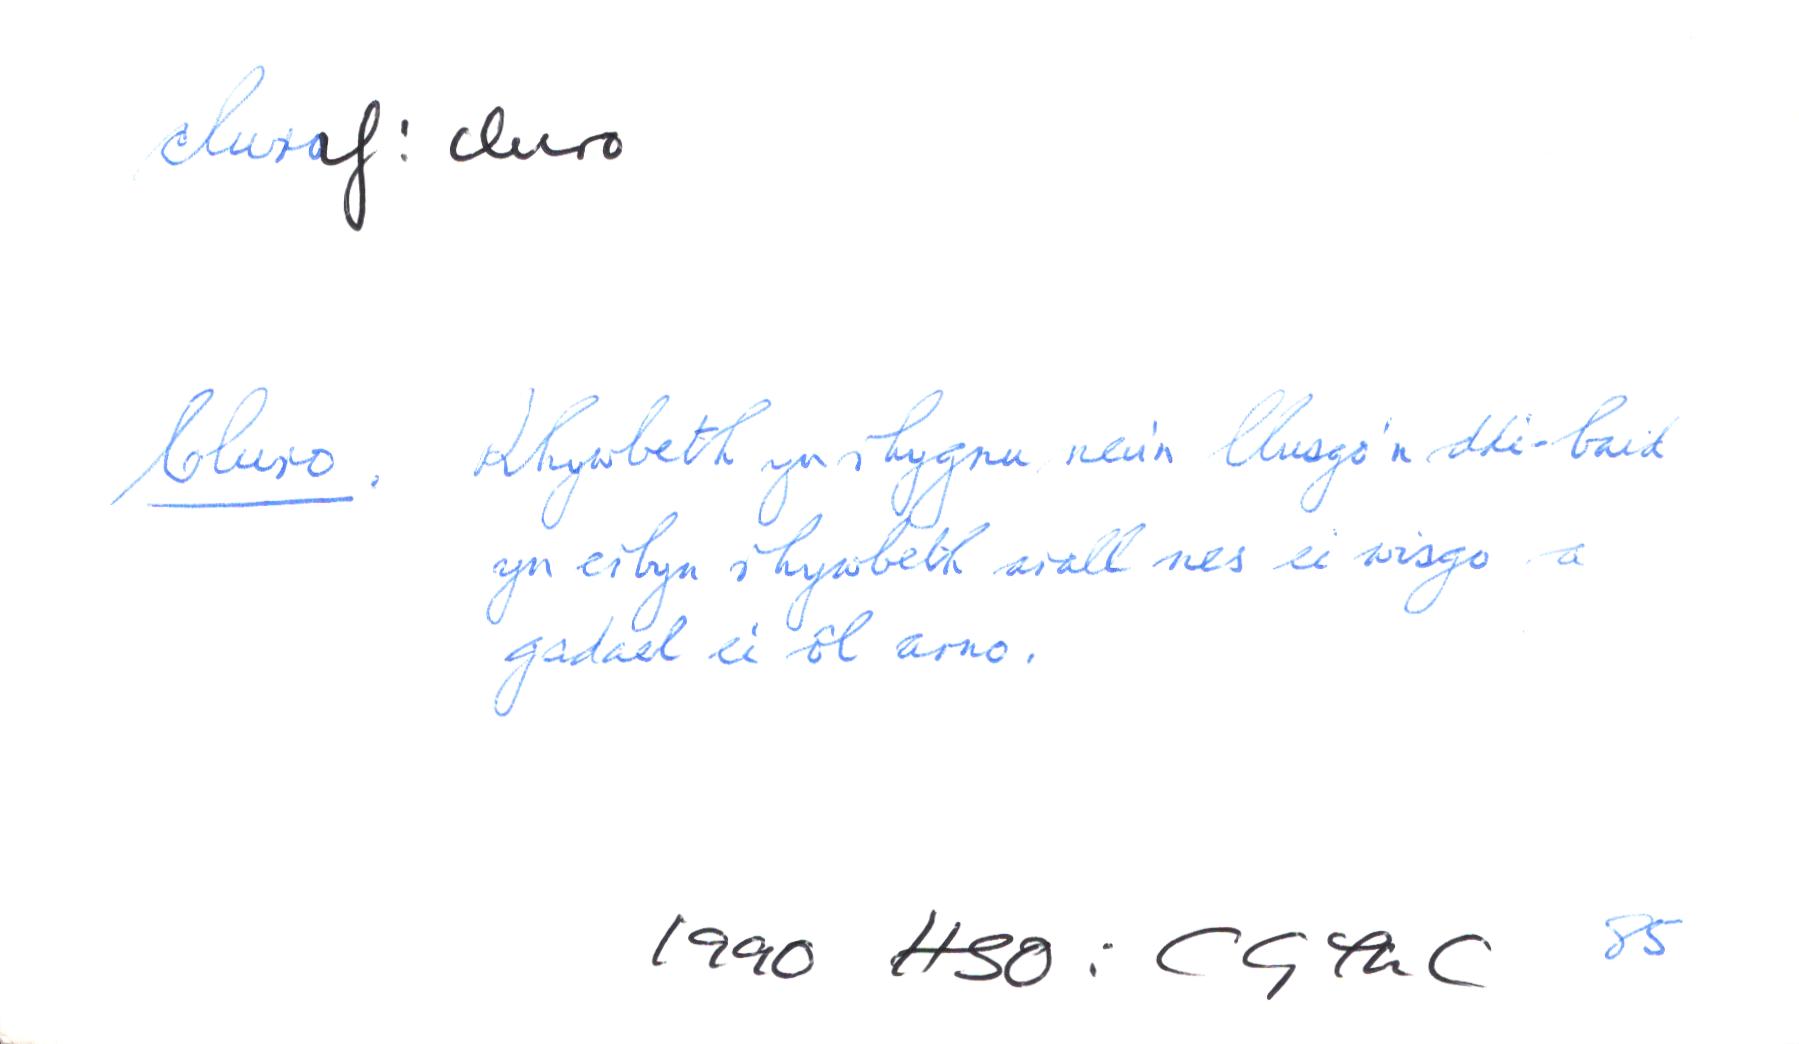 cluraf: cluro
Cluro. Rhywbeth yn rhygnu neu'n llusgo'n ddi-baid
yn erbyn rhywbeth arall nes ei wisgo a
gadael ei ôl arno.
1990 HSO: CGThC 85